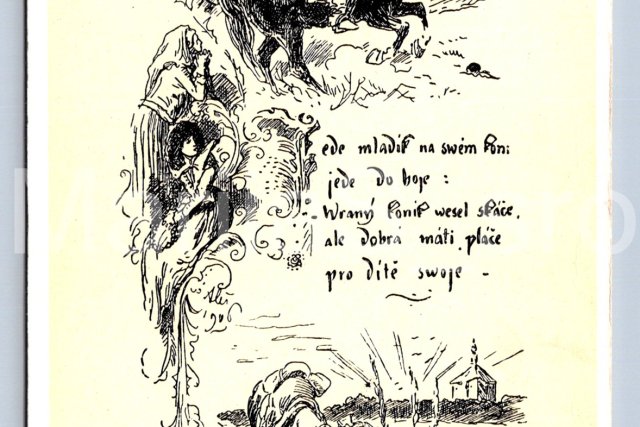 Jede mladík na swém koni
jede do boje :
Wraný koník wesel skáče,
ale dobrá máti pláče
pro dítě swoje -
Aleš
1906